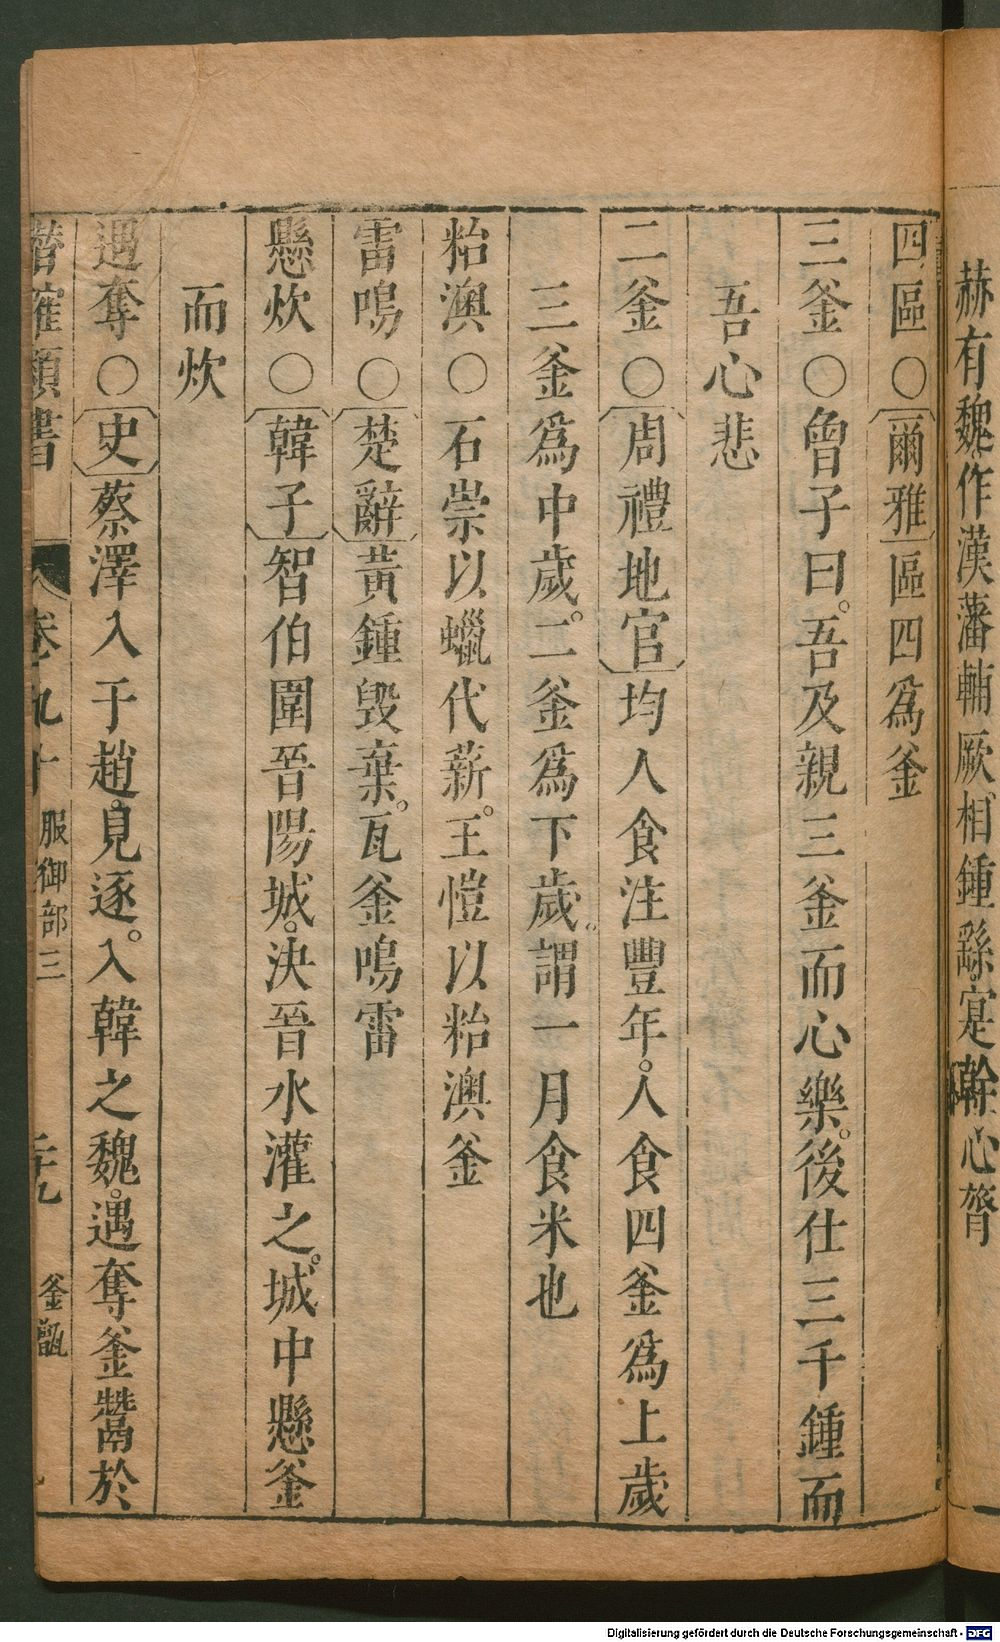 赫有魏作漢藩輔厥相鍾繇寔幹心膂
四區○爾雅區四為釜
三釜○曾子曰。吾及親三釜而心樂。後仕三千鍾而
吾心悲
二釜○周禮地官均人食注豐年。人食四釜為上歲
三釜為中歲。二釜為下歲。謂一月食米也
粭澳○石崇以蠟代薪。王愷以粭澳釜
雷鳴○楚辭黃鍾毀棄。瓦釜鳴雷
懸炊○韓子智伯圍晉陽城。決晉水灌之。城中懸釜
而炊
遇奪○史蔡澤入于趙。見逐。入韓之魏。遇奪釜鬵於
潛確類書 卷九十 服御部三 釜甑
Digitalisierung gefördert durch die Deutsche Forschungsgemeinschaft - DFG